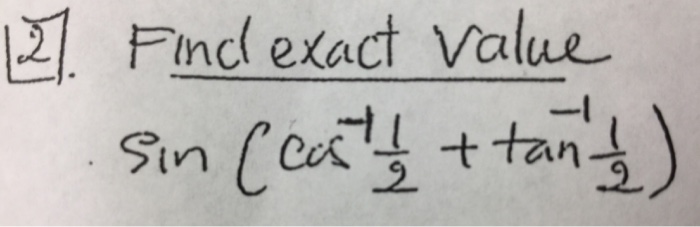 2. Find exact value
sin (cos⁻¹ 1/2 + tan⁻¹ 1/2)